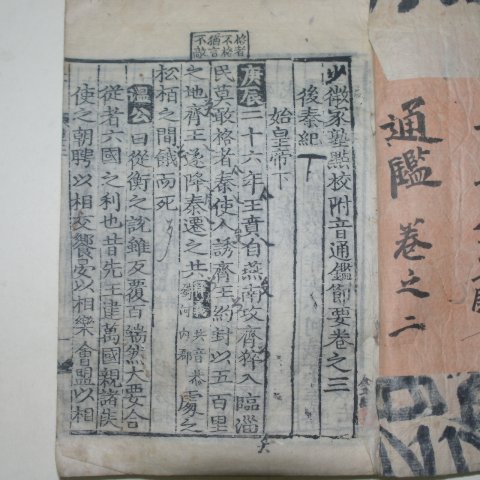 少微家塾點校附音通鑑節要卷之三
後秦紀下
始皇帝下
庚辰二十六年王賁自燕南攻齊猝入臨淄
民莫敢格者秦使人誘齊王約封以五百里
之地齊王遂降秦遷之共 共音恭 河內郡 處之
松栢之間餓而死
溫公曰從衡之說雖反覆百端然大要合
從者六國之利也昔先王建萬國親諸侯
使之朝聘以相交饗宴以相樂會盟以相
格者
不格
猶言
不敵
通鑑 卷之二